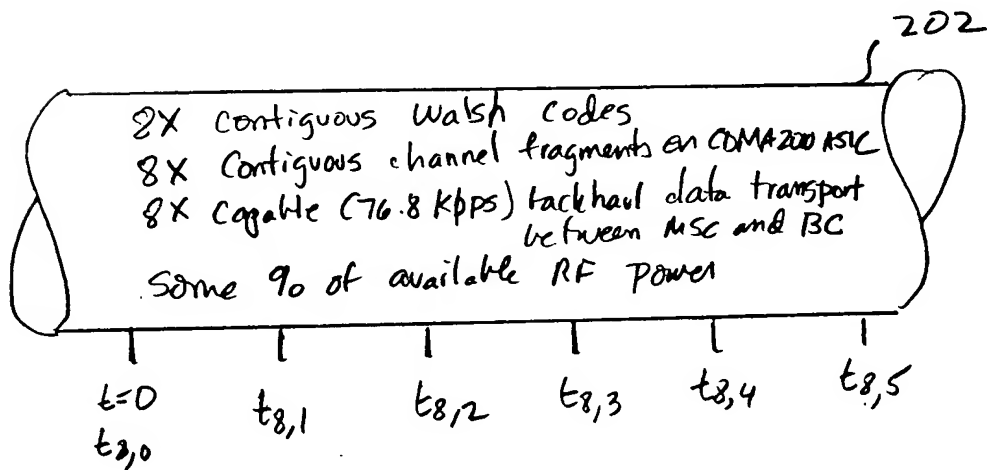 202
8X Contiguous Walsh Codes
8X Contiguous channel fragments on CDMA2000 ASIC
8X Capable (76.8 Kbps) backhaul data transport
between MSC and BC
Some % of available RF Power
t=0
t8,0 t8,1 t8,2 t8,3 t8,4 t8,5